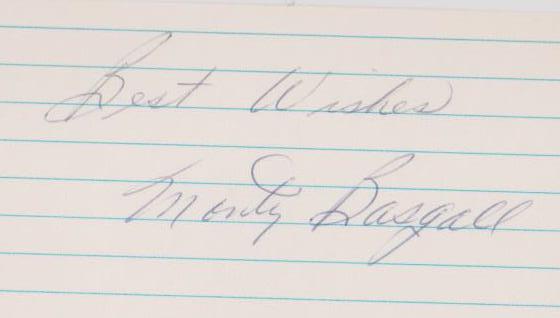 Best Wishes
Monty Basgall